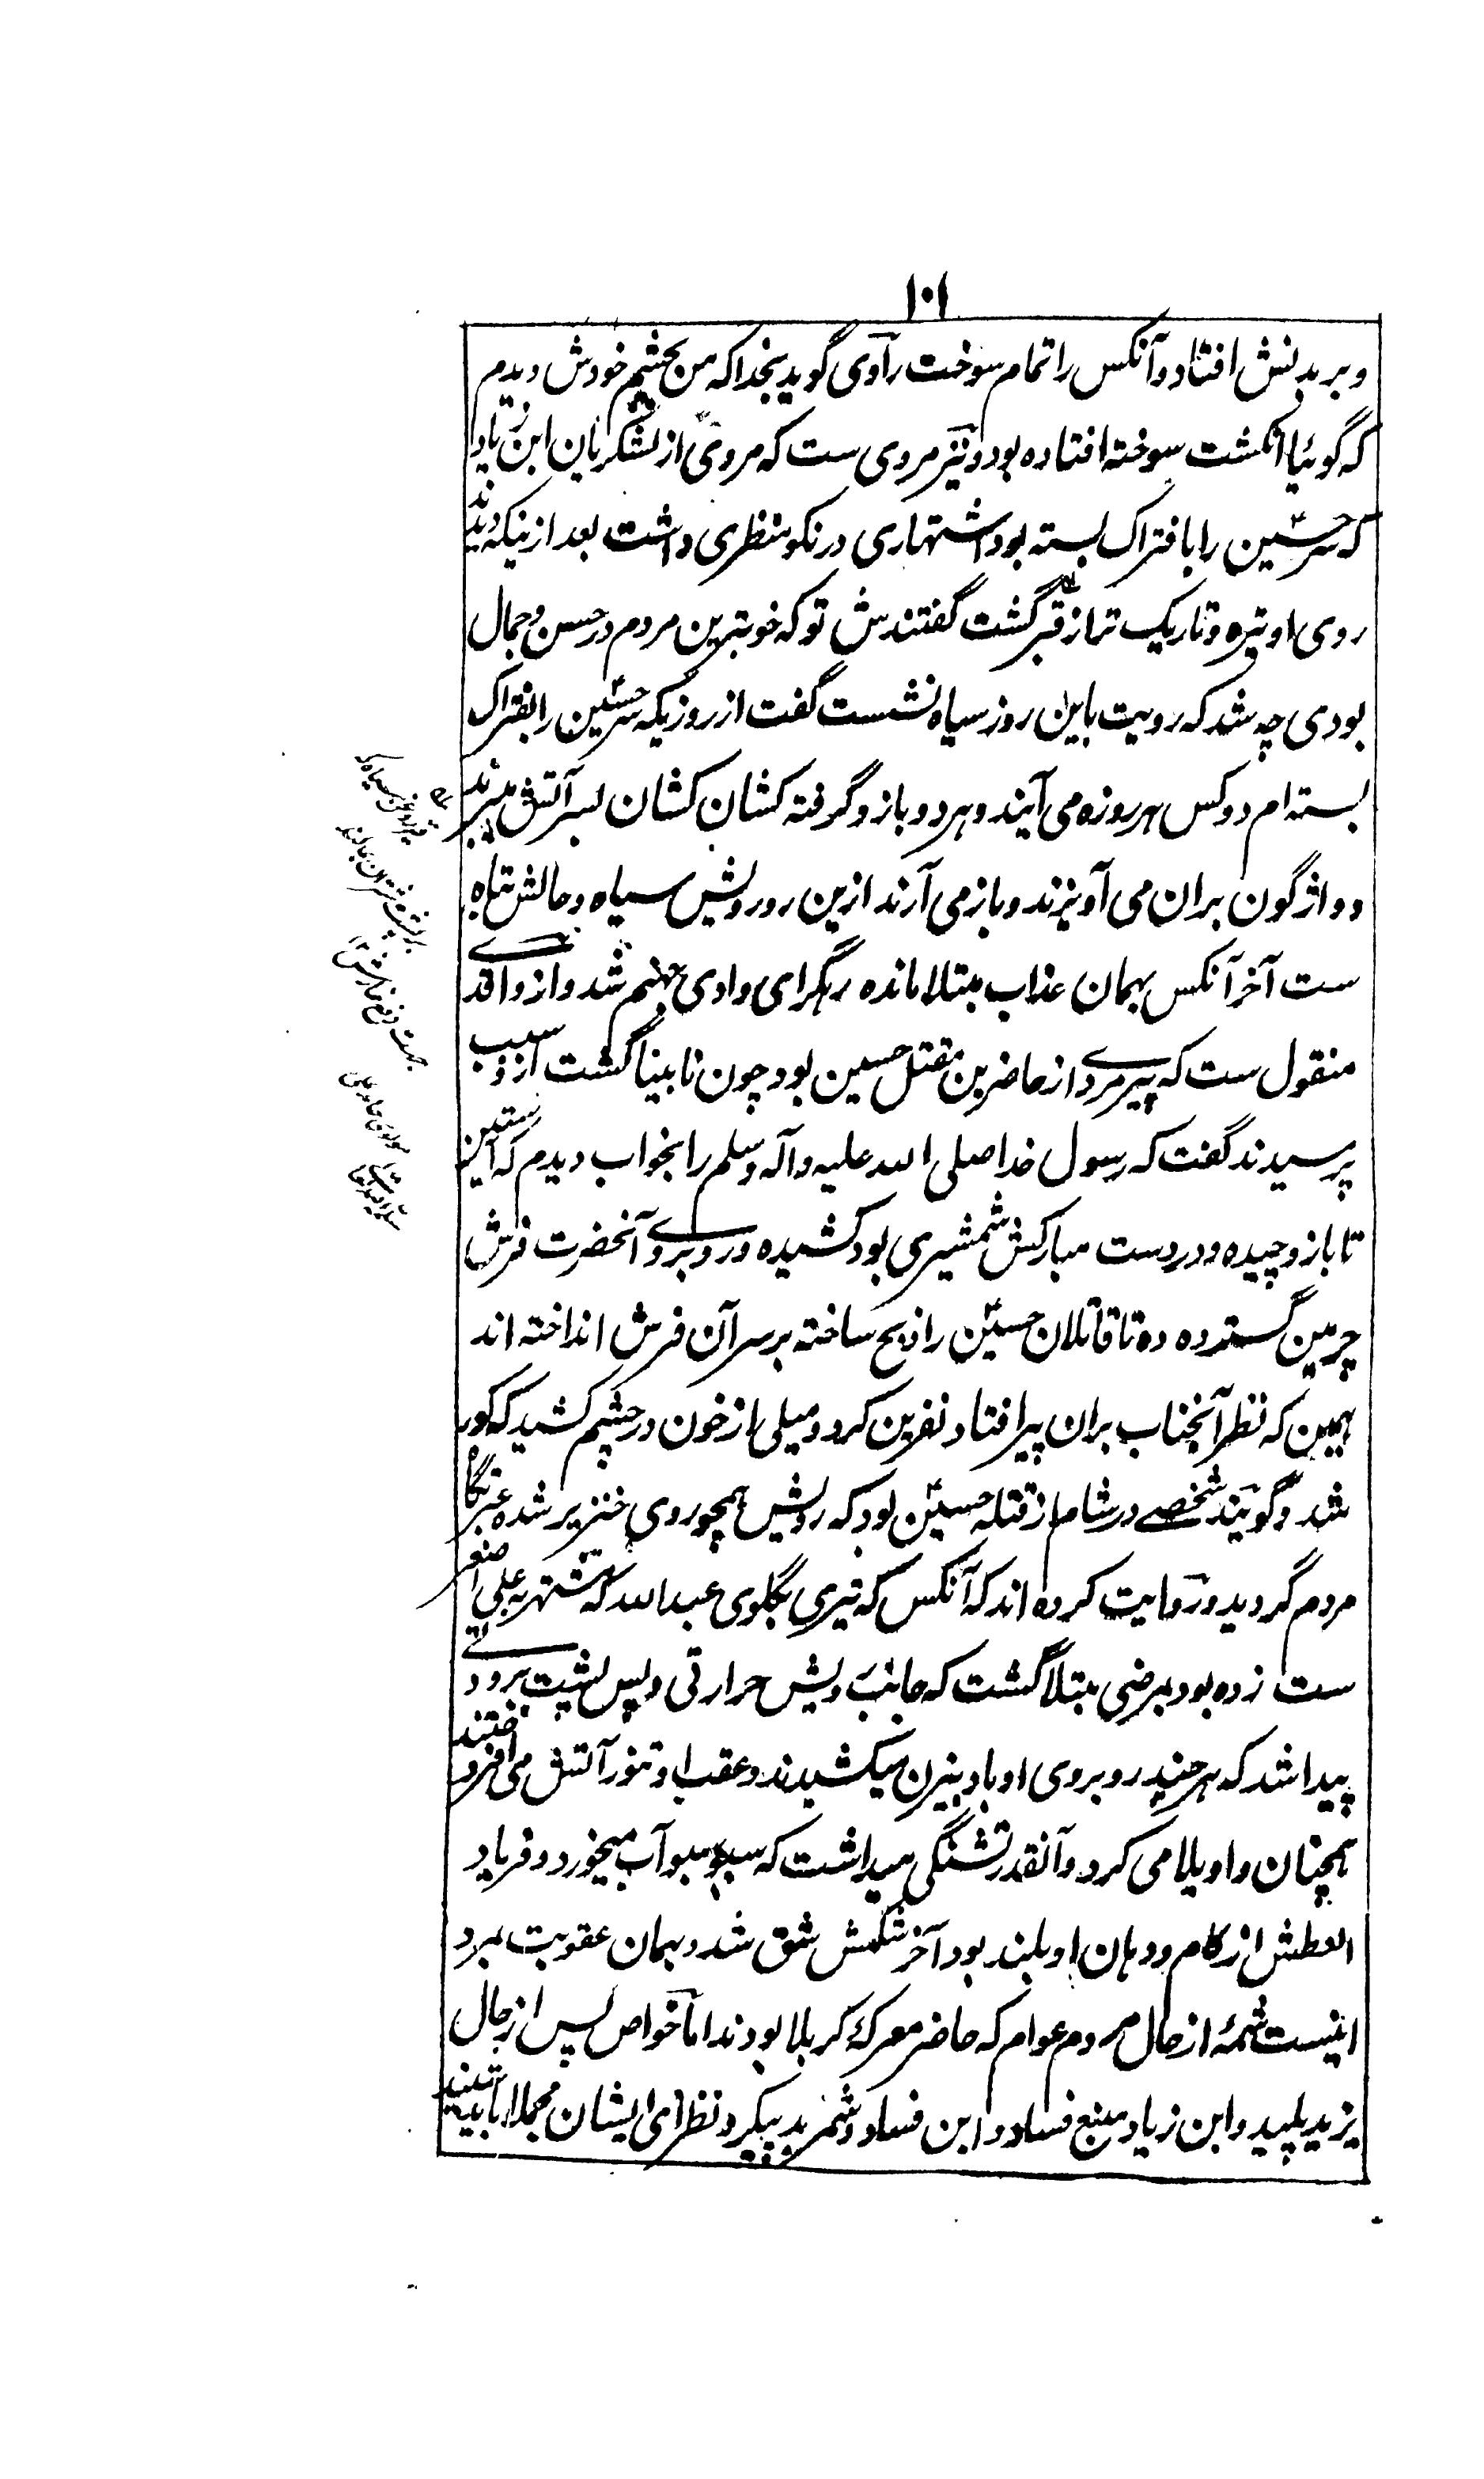 ۱۰۱
و بر بدنش افتاد و آنکس را تمام سوخت راوی گوید بخدا که من بچشم خودش دیدم
که گوئیا انگشت سوخته افتاده بود و نیز مروی ست که مروی از لشکریان ابن زیاد
که سر حسین را با فتراک بسته بود اشتهاری در نکو منظری داشت بعد ازینکه دیدند
روی او تیره و تاریک تر از قیر گشت گفتندش تو که خوبترین مردم در حسن و جمال
بودی چه شد که رویت باین روز سیاه نشست گفت از روزیکه سر حسین را بفتراک
بسته ام دو کس هر روزه می آیند و هر دو بازو گرفته کشان کشان بسر آتش میبرند
و واژگون بران می آویزند و باز می آرند ازین رو رویش سیاه و حالش تباه
ست آخر آنکس بهمان عذاب مبتلا مانده رهگرای وادی جهنم شد و از واقدی
منقول ست که پیرمردے از حاضرین مقتل حسین بود چون نابینا گشت ازو سبب
پرسیدند گفت که رسول خدا صلی الله علیه وآله وسلم را بخواب دیدم که آستین
تا بازو چیده و در دست مبارکش شمشیری بود کشیده و روبروے آنحضرت فرش
چرمین گسترده ده تا قاتلان حسین را ذبح ساخته بر سر آن فرش انداخته اند
همین که نظر آنجناب بران پیر افتاد نفرین کرد و میلی از خون در چشم کشید که کور
شد و گویند شخصے در شام از قتلهٔ حسین بود که رویش همچو روی خنزیر شده عبرتگاه
مردم گردید و روایت کرده اند که آنکس که تیری بگلوی عبدالله که مشتهر به علی اصغر
ست زده بود بمرضی مبتلا گشت که جانب رویش حرارتی و پس پشت برودتے
پیدا شد که هر چند روبروی او بادبیزن میکشیدند و عقب او تنور آتش می افروختند
همچنان واویلا می کرد و آنقدر تشنگی میداشت که سبو سبو آب میخورد و فریاد
العطش از کام و دهان او بلند بود آخر شکمش شق شد و بهمان عقوبت بمرد
اینست شمهٔ از حال مردم عوام که حاضر معرکه کربلا بودند اما خواص پس از حال
یزید پلید و ابن زیاد منبع فساد و ابن فساد و شمر بد پیکر و نظرای ایشان مجملا بایدشنید